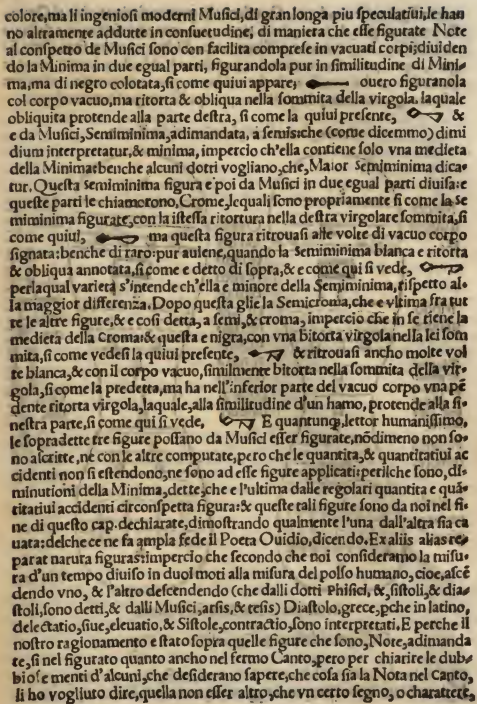 colore,ma li ingeniosi moderni Musici,di gran longa piu speculatiui,le han
no altramente addutte in consuetudine; di maniera che esse figurate Note
al conspetto de Musici sono con facilita comprese in vacuati corpi;diuiden
do la Minima in due egual parti, figurandola pur in similitudine di Mini-
ma,ma di negro colotata,si come quiui appare; ouero figuranola
col corpo vacuo,ma ritorta & obliqua nella sommita della virgola. laquale
obliquita protende alla parte destra, si come la quiui presente, &
e da Musici,Semiminima,adimandata, a semis:che (come dicemmo) dimi
dium interpretatur,& minima, impercio ch'ella contiene solo vna medieta
della Minima:benche alcuni dotri vogliano,che,Maior Semiminima dica-
tur. Questa semiminima figura e poi da Musici in due egual parti diuisa:e
queste parti le chiamorono, Crome,lequali sono propriamente si come la Se
miminima figurate,con la istessa ritortura nella destra virgolare sommita,si
come quiui, ma questa figura ritrouasi alle volte di vacuo corpo
signata:benche di raro:pur aulene,quando la Semiminima blanca e ritorta
& obliqua annotata,si come e detto di sopra,& e come qui si vede,
perlaqual varieta s'intende ch'ella e minore della Semiminima,rispetto al-
la maggior differenza. Dopo questa glie la Semicroma,che e vltima fra tut
te le altre figure,& e cosi detta, a semi,& croma, impercio che in se tiene la
medieta della Croma:& questa e nigra,con vna bitorta virgola nella lei som
mita,si come vedesi la quiui presente, & ritrouasi ancho molte vol
te blanca,& con il corpo vacuo,similmente bitorta nella sommita della vir-
gola,si come la predetta,ma ha nell'inferior parte del vacuo corpo vna pē
dente ritorta virgola,laquale,alla similitudine d'un hamo, protende alla si-
nestra parte,si come qui si vede, E quantunq; lettor humanissimo,
le sopradette tre figure possano da Musici esser figurate,nōdimeno non so-
no ascritte,ne con le altre computate,pero che le quantita,& quantitatiui ac
cidenti non si estendono,ne sono ad esse figure applicati:perilche sono, di-
minutioni della Minima,dette,che e l'ultima dalle regolari quantita e quā-
titatiui accidenti circonspetta figura:& queste tali figure sono da noi nel fi-
ne di questo cap.dechiarate,dimostrando qualmente l'una dall'altra sia ca
uata:delche ce ne fa ampla fede il Poeta Ouidio,dicendo.Ex aliis alias re-
parat natura figuras:impercio che secondo che noi consideramo la misu-
ra d'un tempo diuiso in duoi moti alla misura del polso humano, cioe,ascē
dendo vno, & l'altro descendendo (che dalli dotti Phisici, &,sistoli,& dia-
stoli,sono detti,& dalli Musici,arsis,& tesis) Diastolo,grece,pche in latino,
delectatio,siue,eleuatio,& Sistole,contractio,sono interpretati.E perche il
nostro ragionamento e stato sopra quelle figure che sono,Note,adimanda
te,si nel figurato quanto ancho nel fermo Canto,pero per chiarire le dub-
biose menti d'alcuni,che desiderano sapere,che cosa sia la Nota nel canto,
li ho vogliuto dire,quella non esser altro,che vn certo segno, o charattere,